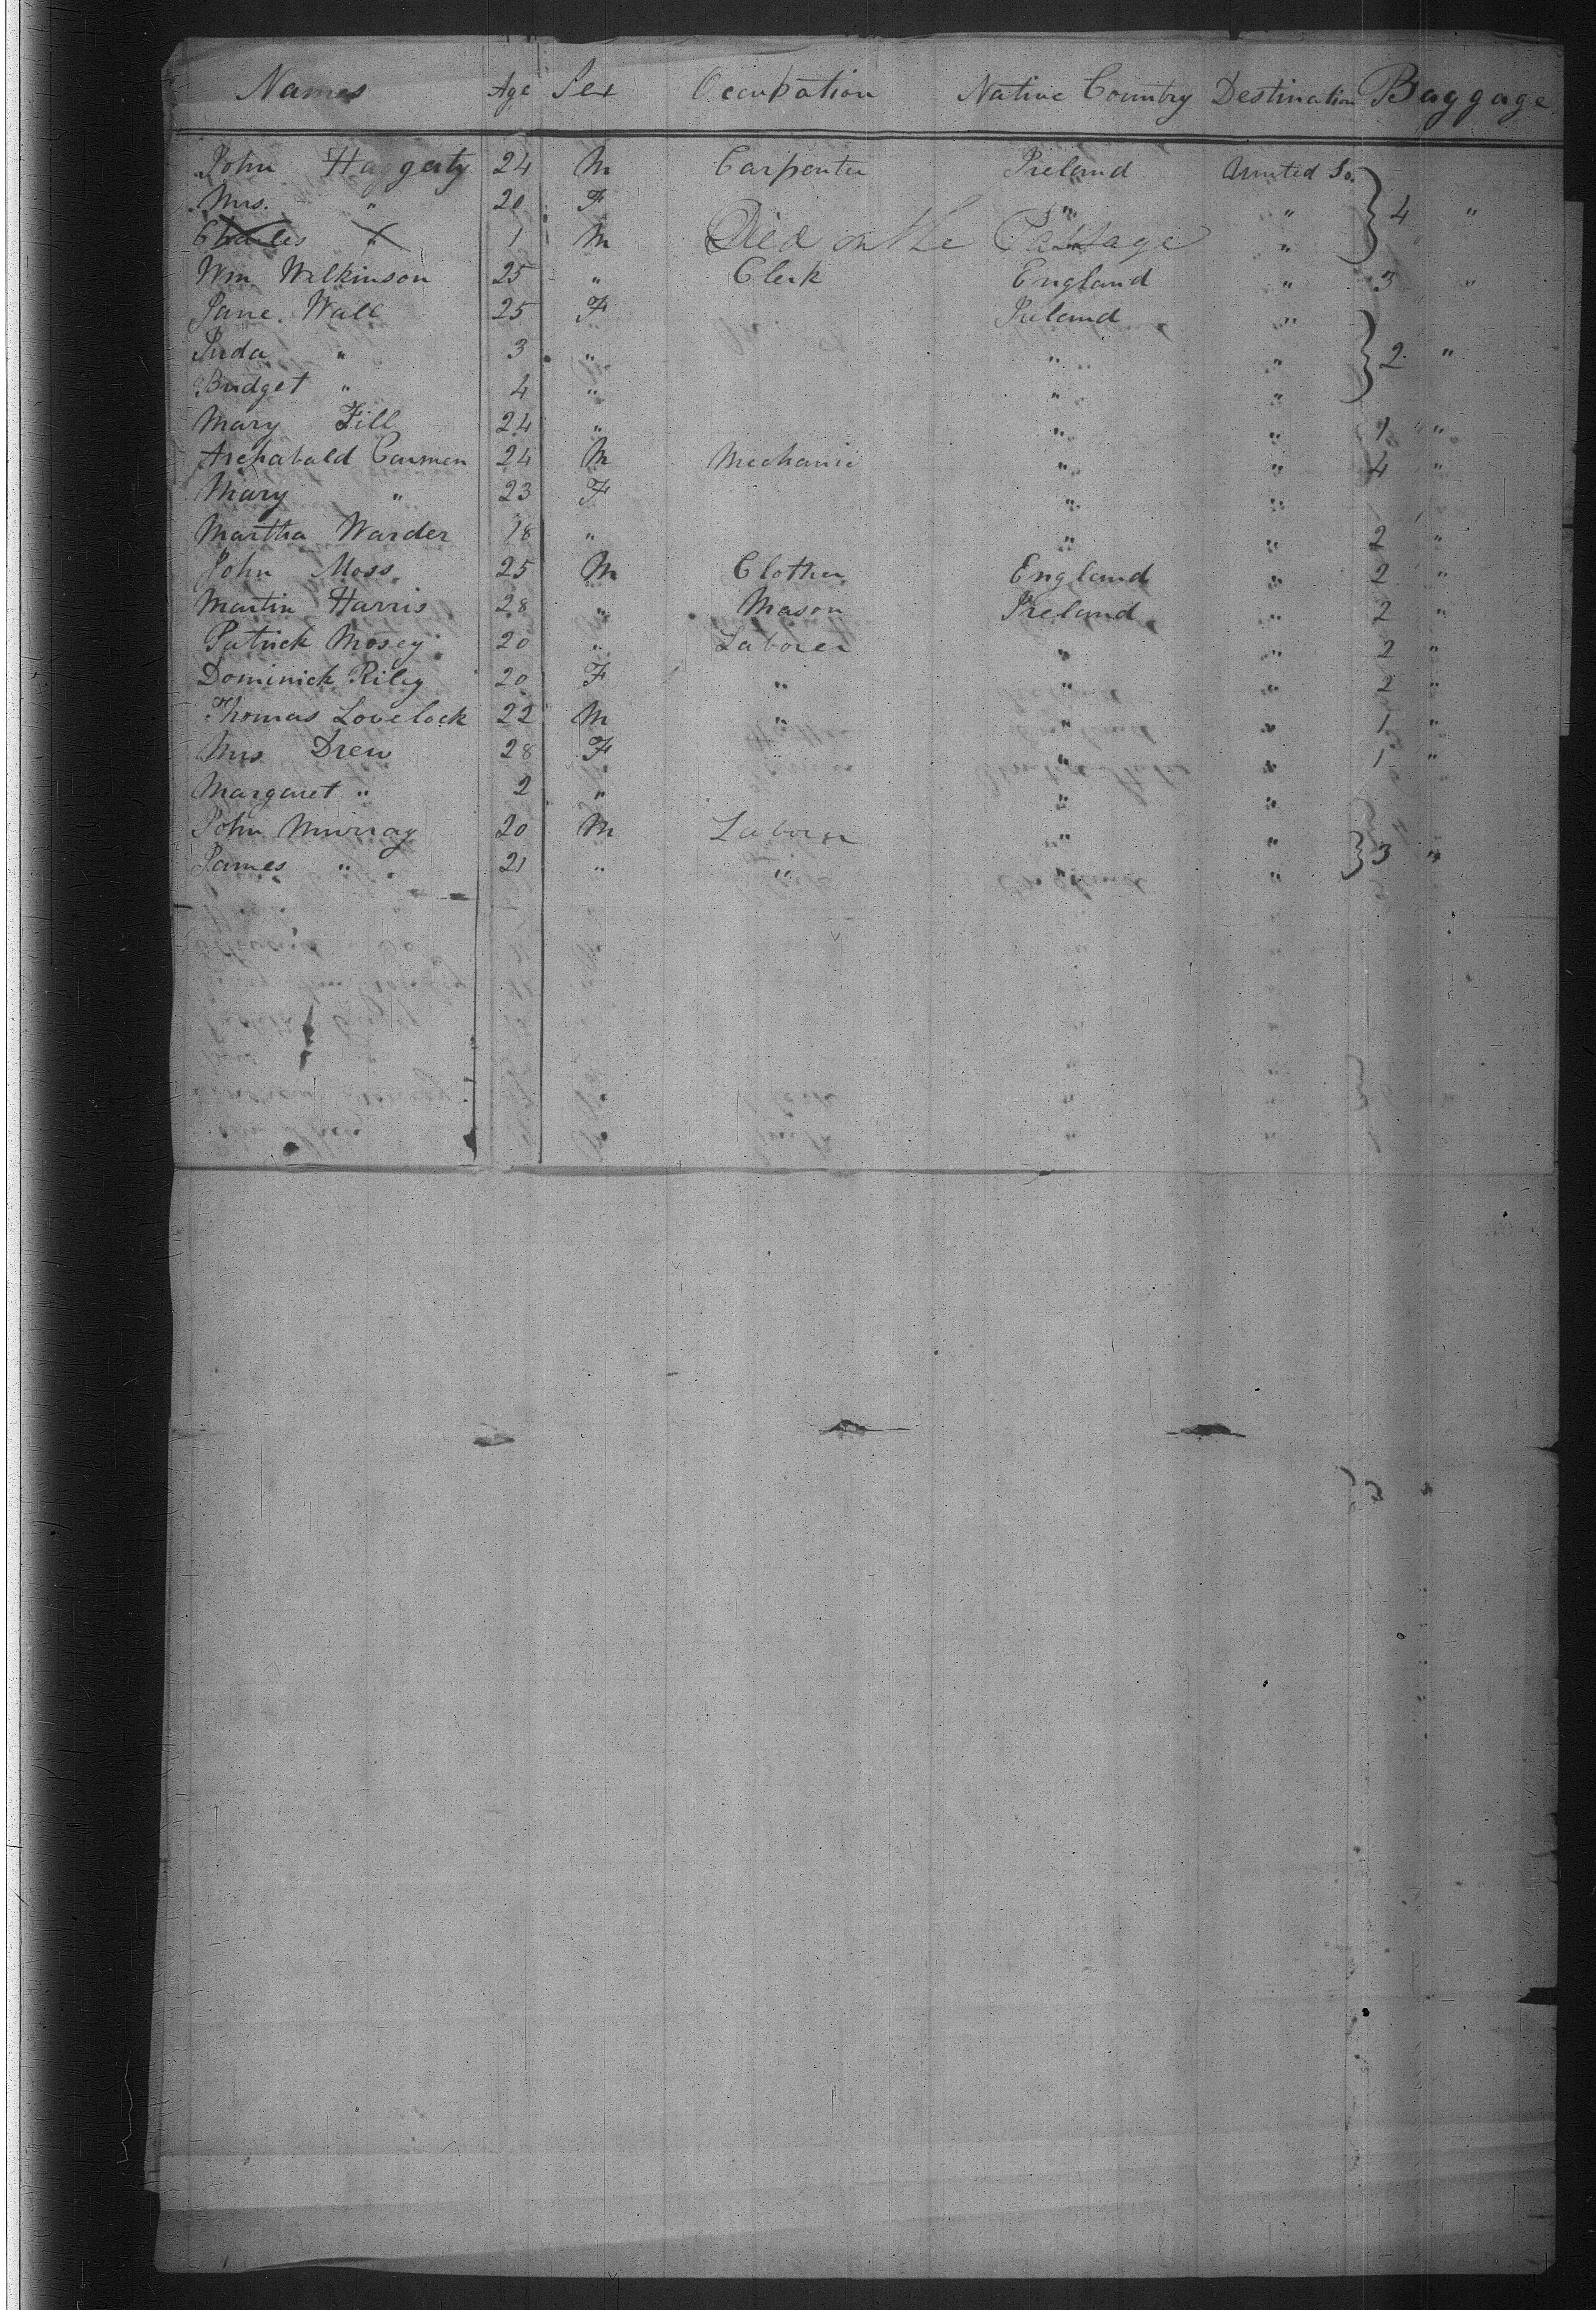 Names Age Sex Occupation Native Country Destination Baggage
John Haggerty 24 M Carpenter Ireland United So. 4 "
Mrs. " 20 F " "
Charles " 1 M Died on the Passage "
Wm Wilkinson 25 " Clerk England " 3 "
Jane Wall 25 F Ireland " 2 "
Juda " 3 " " "
Bridget " 4 " " "
Mary Fill 24 " " " 1 "
Archabald Carmen 24 M Mechanic " " 4 "
Mary " 23 F " "
Martha Warder 18 " " " 2 "
John Moss 25 M Clother England " 2 "
Martin Harris 28 " Mason Ireland " 2 "
Patrick Mosey 20 " Laborer " " 2 "
Dominick Riley 20 F " " " 2 "
Thomas Lovelock 22 M " " " 1 "
Mrs Drew 28 F " " " 1 "
Margaret " 2 " " "
John Murray 20 M Laborer " " 3 "
James " 21 " " " "